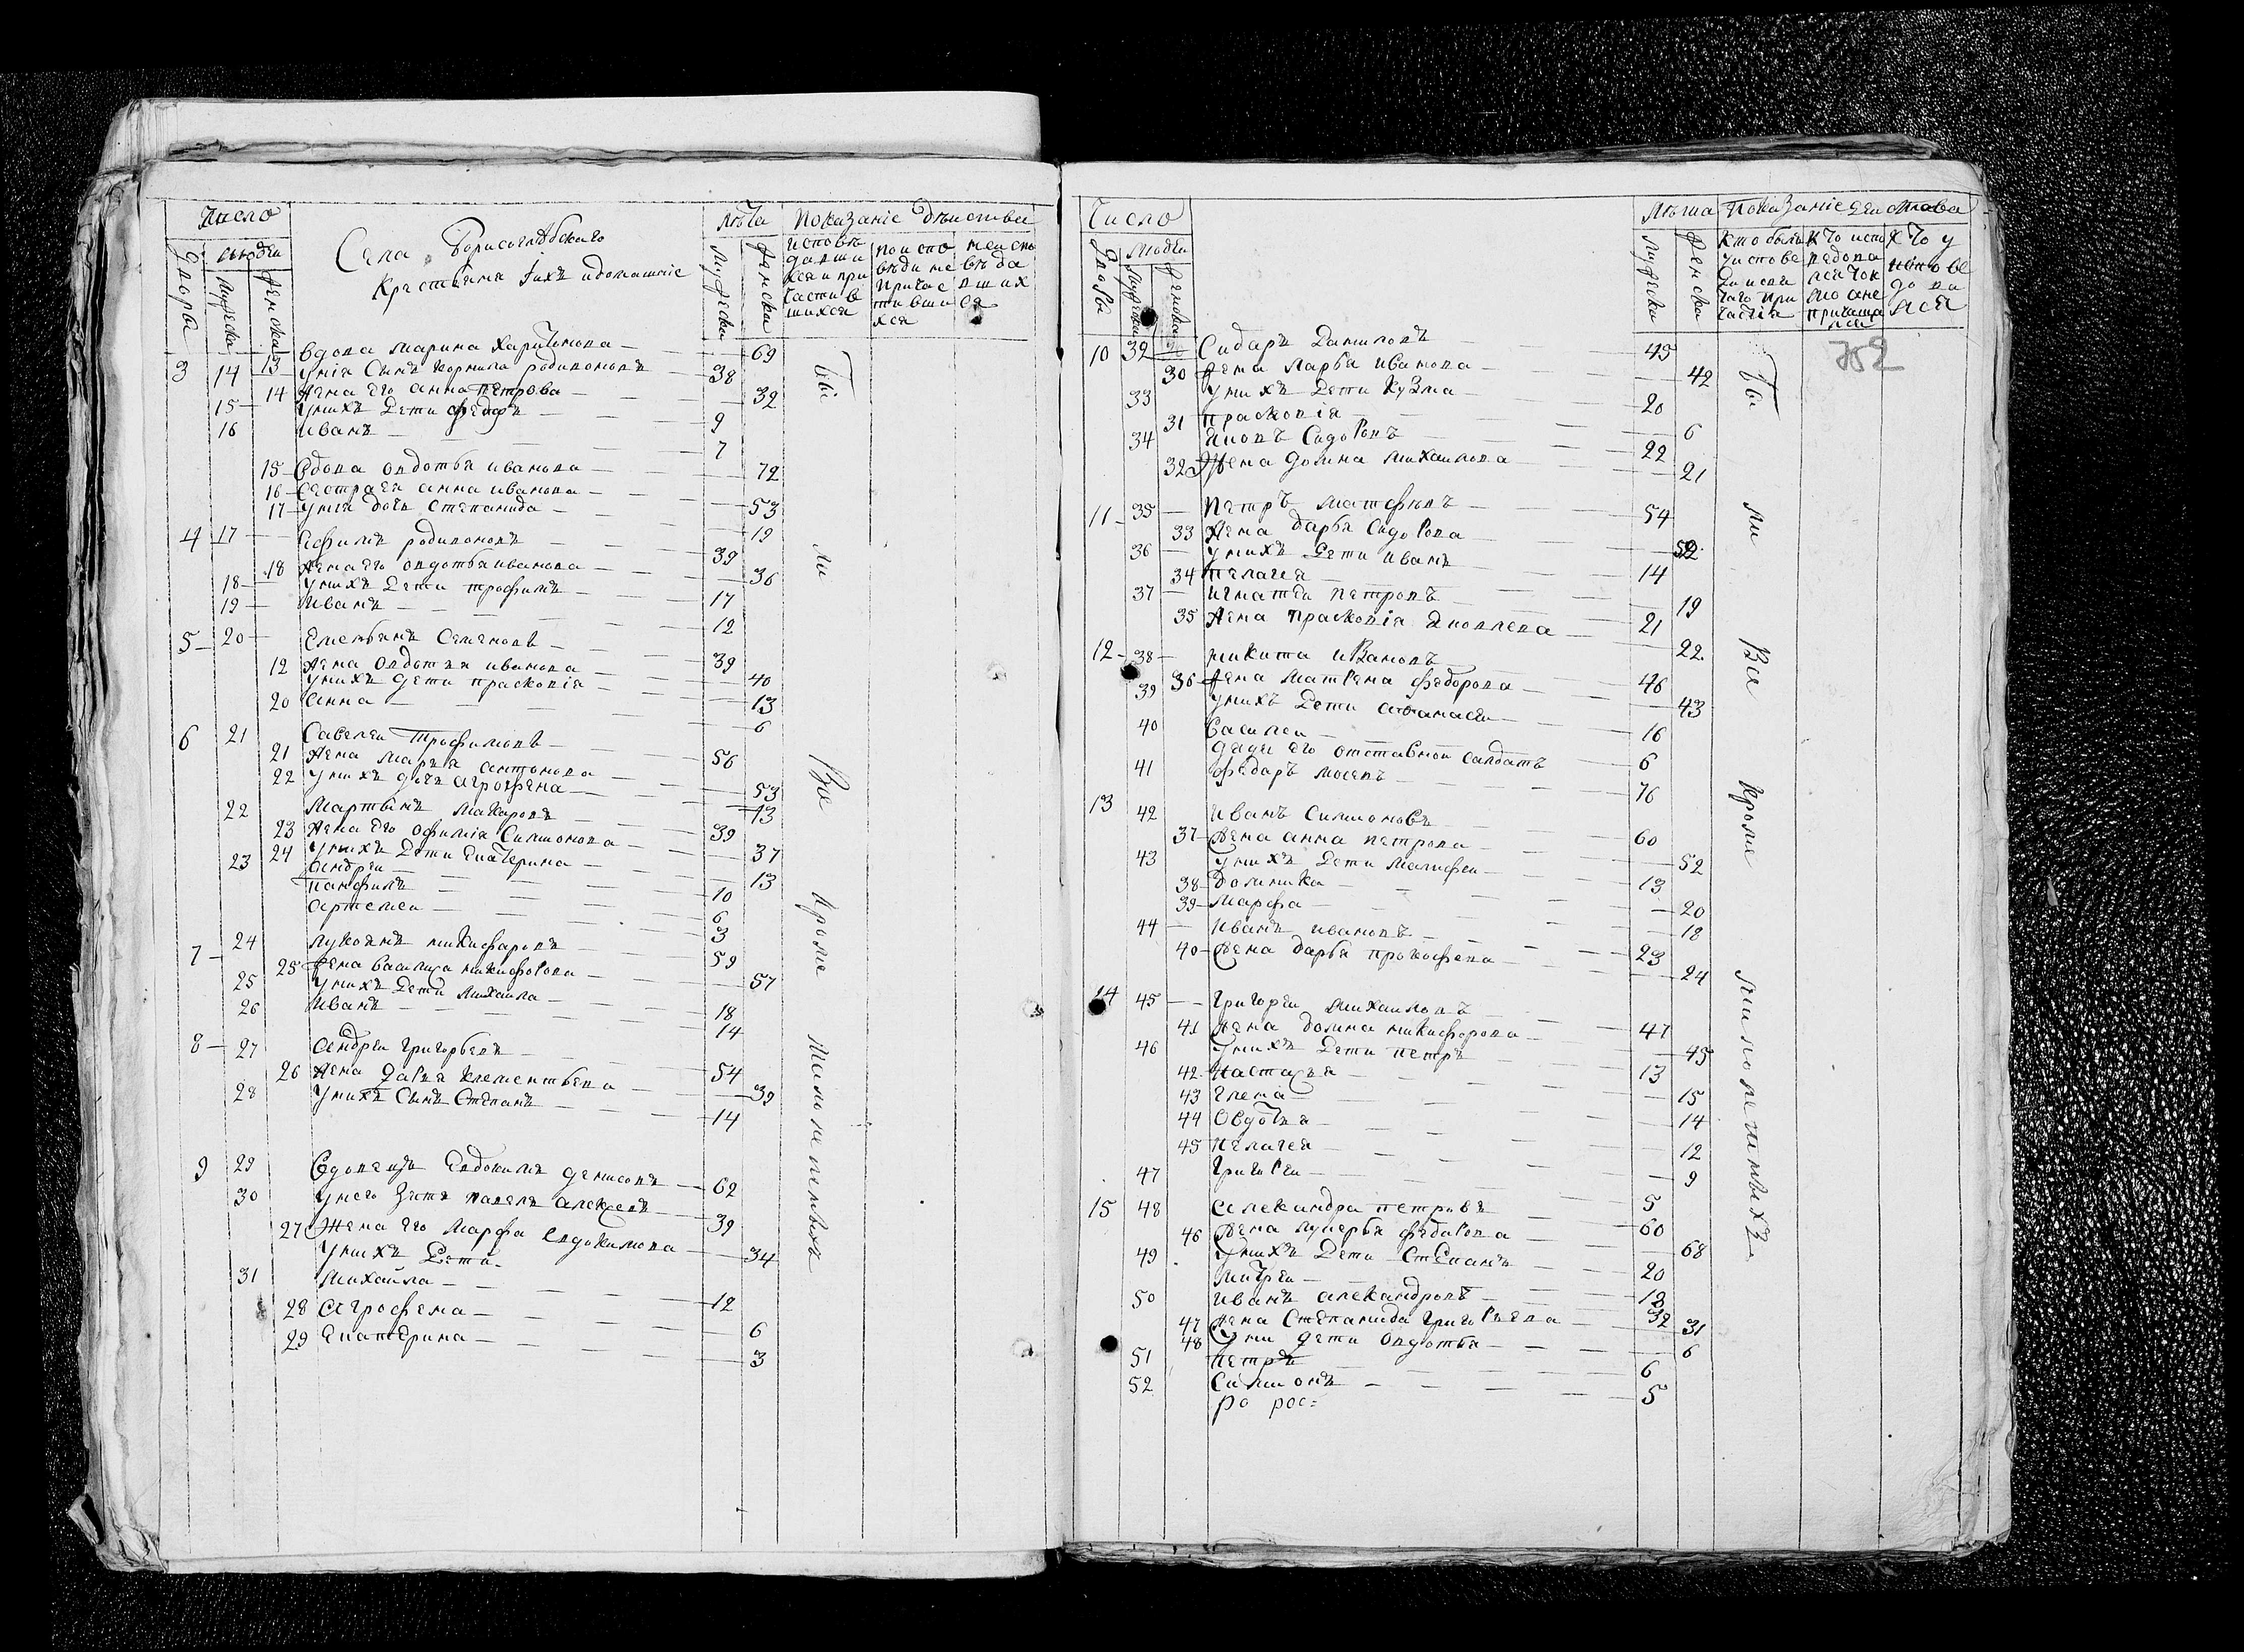 Число
Села Борисоглѣбскаго
Крестьяня Iихъ идомашніе
лѣта Показаніе дѣиства
Дворы людеи мужеска женска
мужеска женска
исповѣдавшихся и причастившихся
по исповѣди не причастившихся
не исповѣдавшихся
3 13 вдова марина харитонова 69
14 унея Сынъ кормила родионовъ 38
14 жена его анна петрова 32
15 унихъ дети федоръ 9
16 иванъ 7
15 вдова овдотья иванова 72
16 сестра ея анна иванова 53
17 унея дочь степанида 19
4 17 ефимъ родионовъ 39
18 жена его овдотья иванова 36
18 унихъ дети трофимъ 17
19 иванъ 12
5 20 емельянъ семеновъ 39
12 жена овдотья иванова 40
унихъ дети прасковiя 13
20 анна 6
6 21 Савелеи трофимовъ 56
21 жена марья антонова 53
22 унихъ дочь агрофена 13
22 мартынъ макаровъ 39
23 жена его офимiя Симионова 37
24 унихъ дети екатерина 13
23 андреи 10
панфилъ 6
артемеи 3
7 24 лукоянъ никифаровъ 59
25 жена василиса никифорова 57
25 унихъ дети михаила 18
26 иванъ 14
8 27 андреи григорьевъ 54
26 жена дарья клементьева 39
28 унихъ сынъ степанъ 14
9 29 вдовецъ евдокимъ денисовъ 62
30 унего зять павелъ алексеевъ 39
27 жена его марфа евдокимова 34
унихъ дети
31 михаила 12
28 агрофена 6
29 екатерина 3
Бы ли Все кроме малолетныхъ
Число
лѣта Показаніе деиства
Дворы людеи мужеска женска
мужеска женска
кто были уисповеди и святаго причастiя
752
10 32 Сидаръ даниловъ 45
30 жена марья иванова 42
33 унихъ дети кузма 20
31 прасковiя 6
34 яковъ Сидоровъ 22
32 жена домна михаилова 21
11 35 петръ матфеевъ 54
33 жена дарья Сидорова 52
36 унихъ дети иванъ 14
34 пелагея 19
37 игнатеи петровъ 21
35 жена прасковiя яковлева 22
12 38 никита ивановъ 46
36 жена матрена федорова 43
39 унихъ дети афанасеи 16
40 василеи 6
дядя его отставнои салдатъ
41 федаръ мосевъ 76
13 42 иванъ симионовъ 60
37 жена анна петрова 52
43 унихъ дети малафеи 13
38 домника 20
39 марфа 18
44 иванъ ивановъ 23
40 жена дарья прокофева 24
14 45 григореи михаиловъ 47
41 жена домна никифорова 45
46 унихъ дети петръ 13
42 настасья 15
43 елена 14
44 овдотья 12
45 пелагея 9
47 григореи 5
15 48 александра петровъ 60
46 жена лукерья федорова 68
49 унихъ дети степанъ 20
митреи 12
50 иванъ александровъ 32
47 жена степанида григорьева 31
48 уни дети овдотья 6
51 петръ 6
52 Симионъ 5
Бы ли Все кроме малолетныхъ